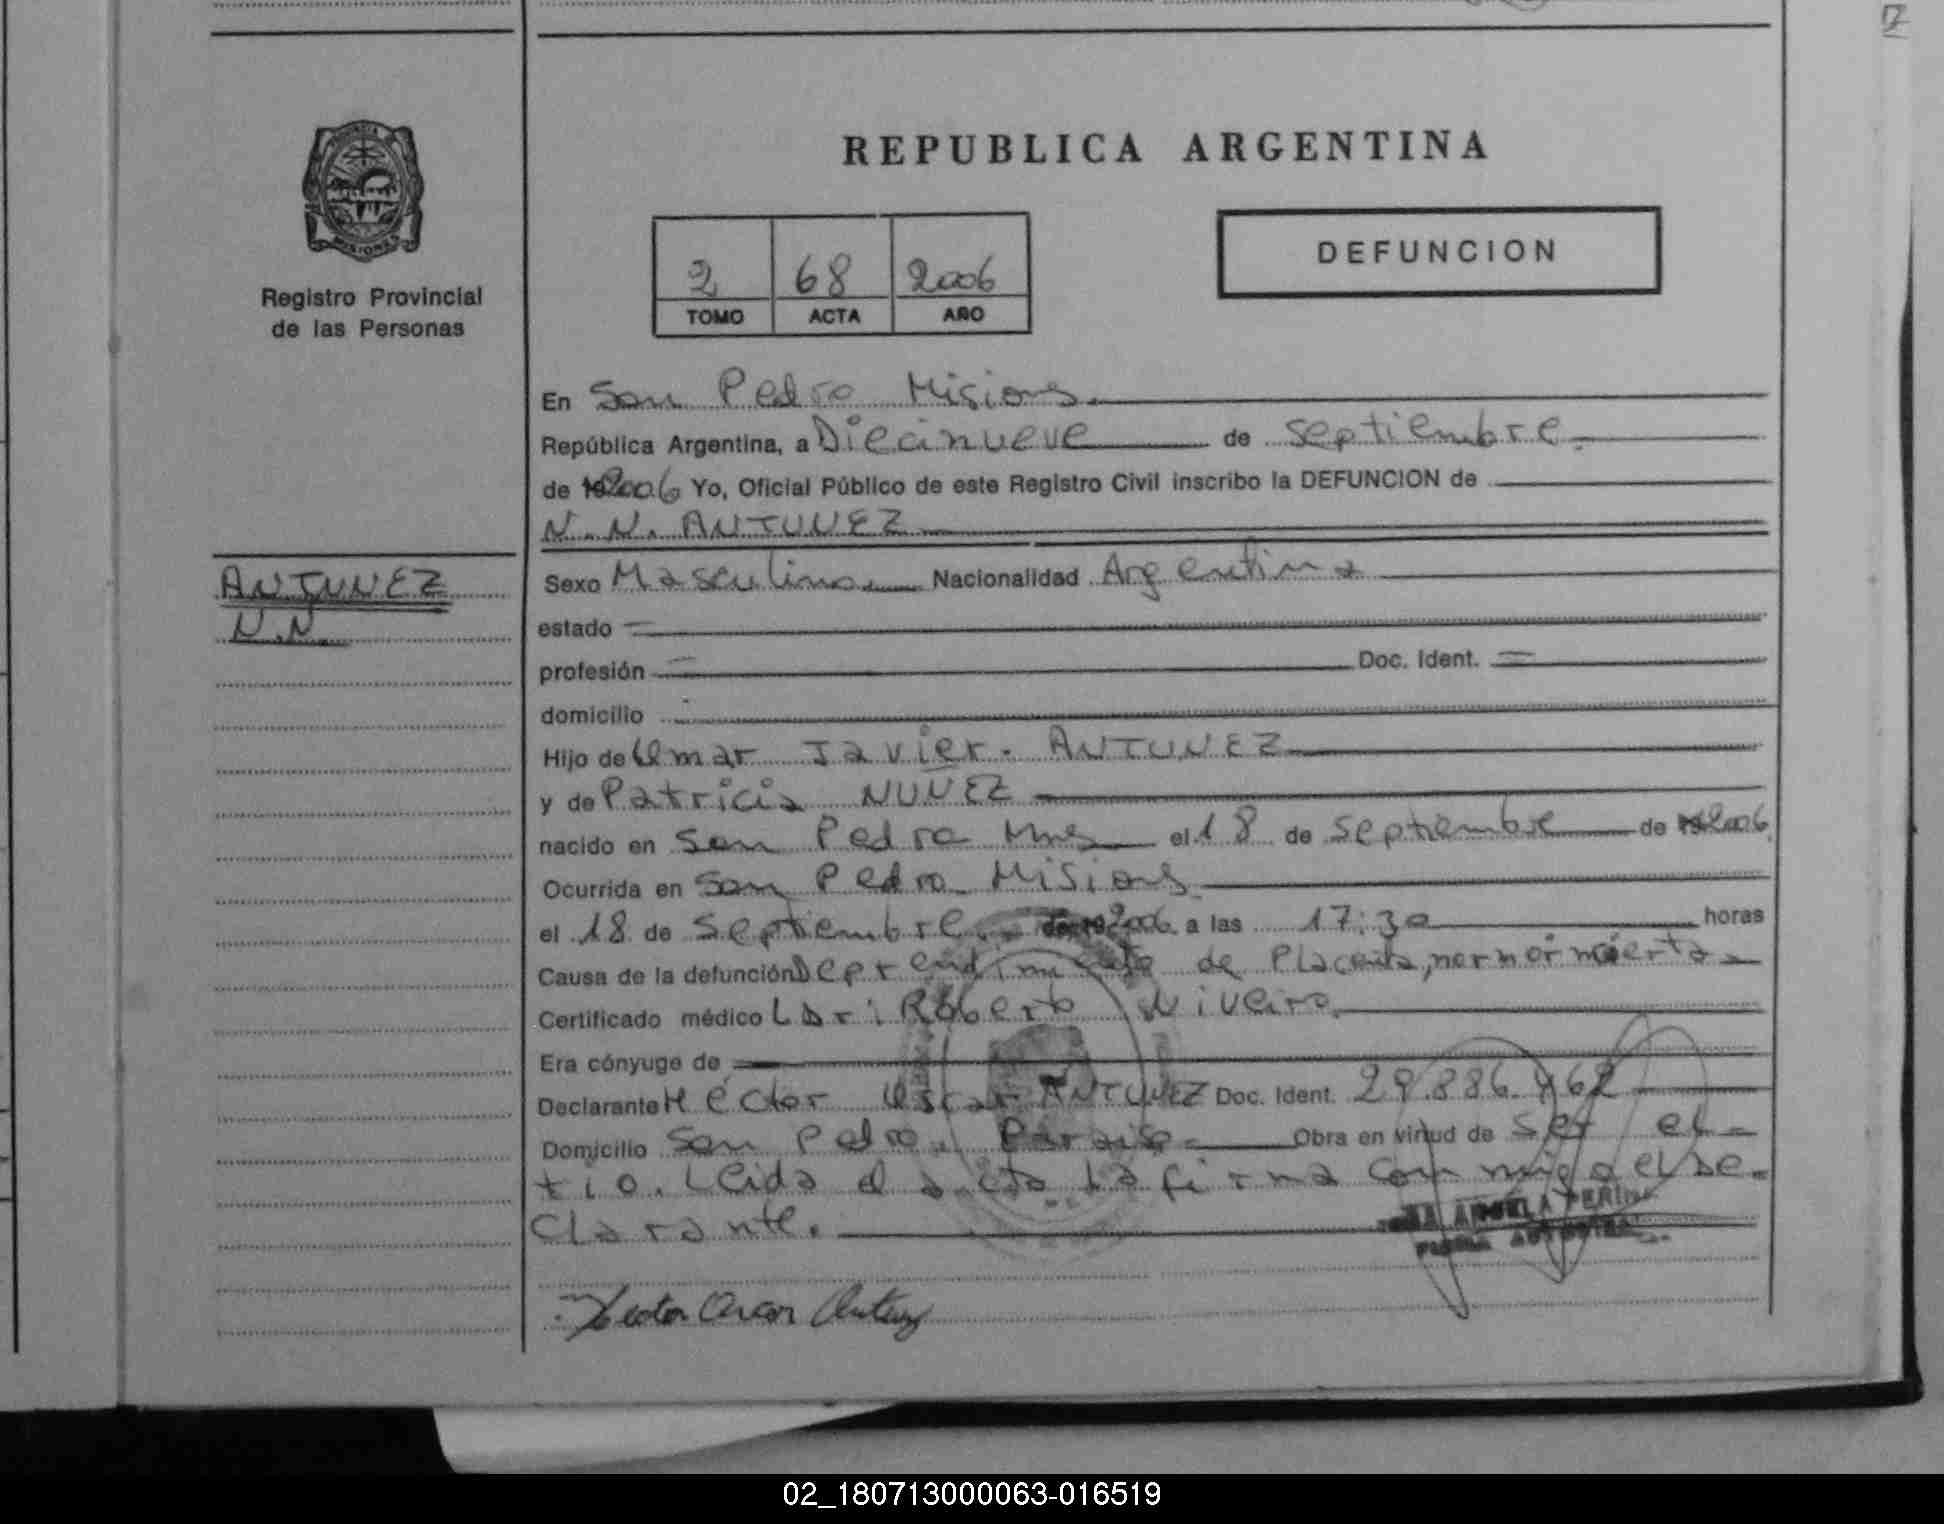 REPUBLICA ARGENTINA
DEFUNCION
2 68 2006
TOMO ACTA AÑO
MISIONES
Registro Provincial
de las Personas
En San Pedro Misiones.
República Argentina, a Diecinueve de septiembre.
de 2006 Yo, Oficial Público de este Registro Civil inscribo la DEFUNCION de
N.N. ANTUNEZ
ANTUNEZ
N.N.
Sexo Masculino Nacionalidad Argentina
estado
profesión Doc. Ident.
domicilio
Hijo de Omar Javier. ANTUNEZ
y de Patricia NUNEZ
nacido en San Pedro Mnes el 18 de septiembre de 2006
Ocurrida en San Pedro Misiones
el 18 de septiembre 2006 a las 17:30 horas
Causa de la defunción de Placenta,
Certificado médico Roberto
Era cónyuge de
Declarante Héctor Oscar ANTUNEZ Doc. Ident. 29.886.462
Domicilio San Pedro. Paraiso. Obra en virtud de ser el
tio. Leida el acta la firma conmigo el De-
clarante.
Hector Oscar Antunez
02_180713000063-016519